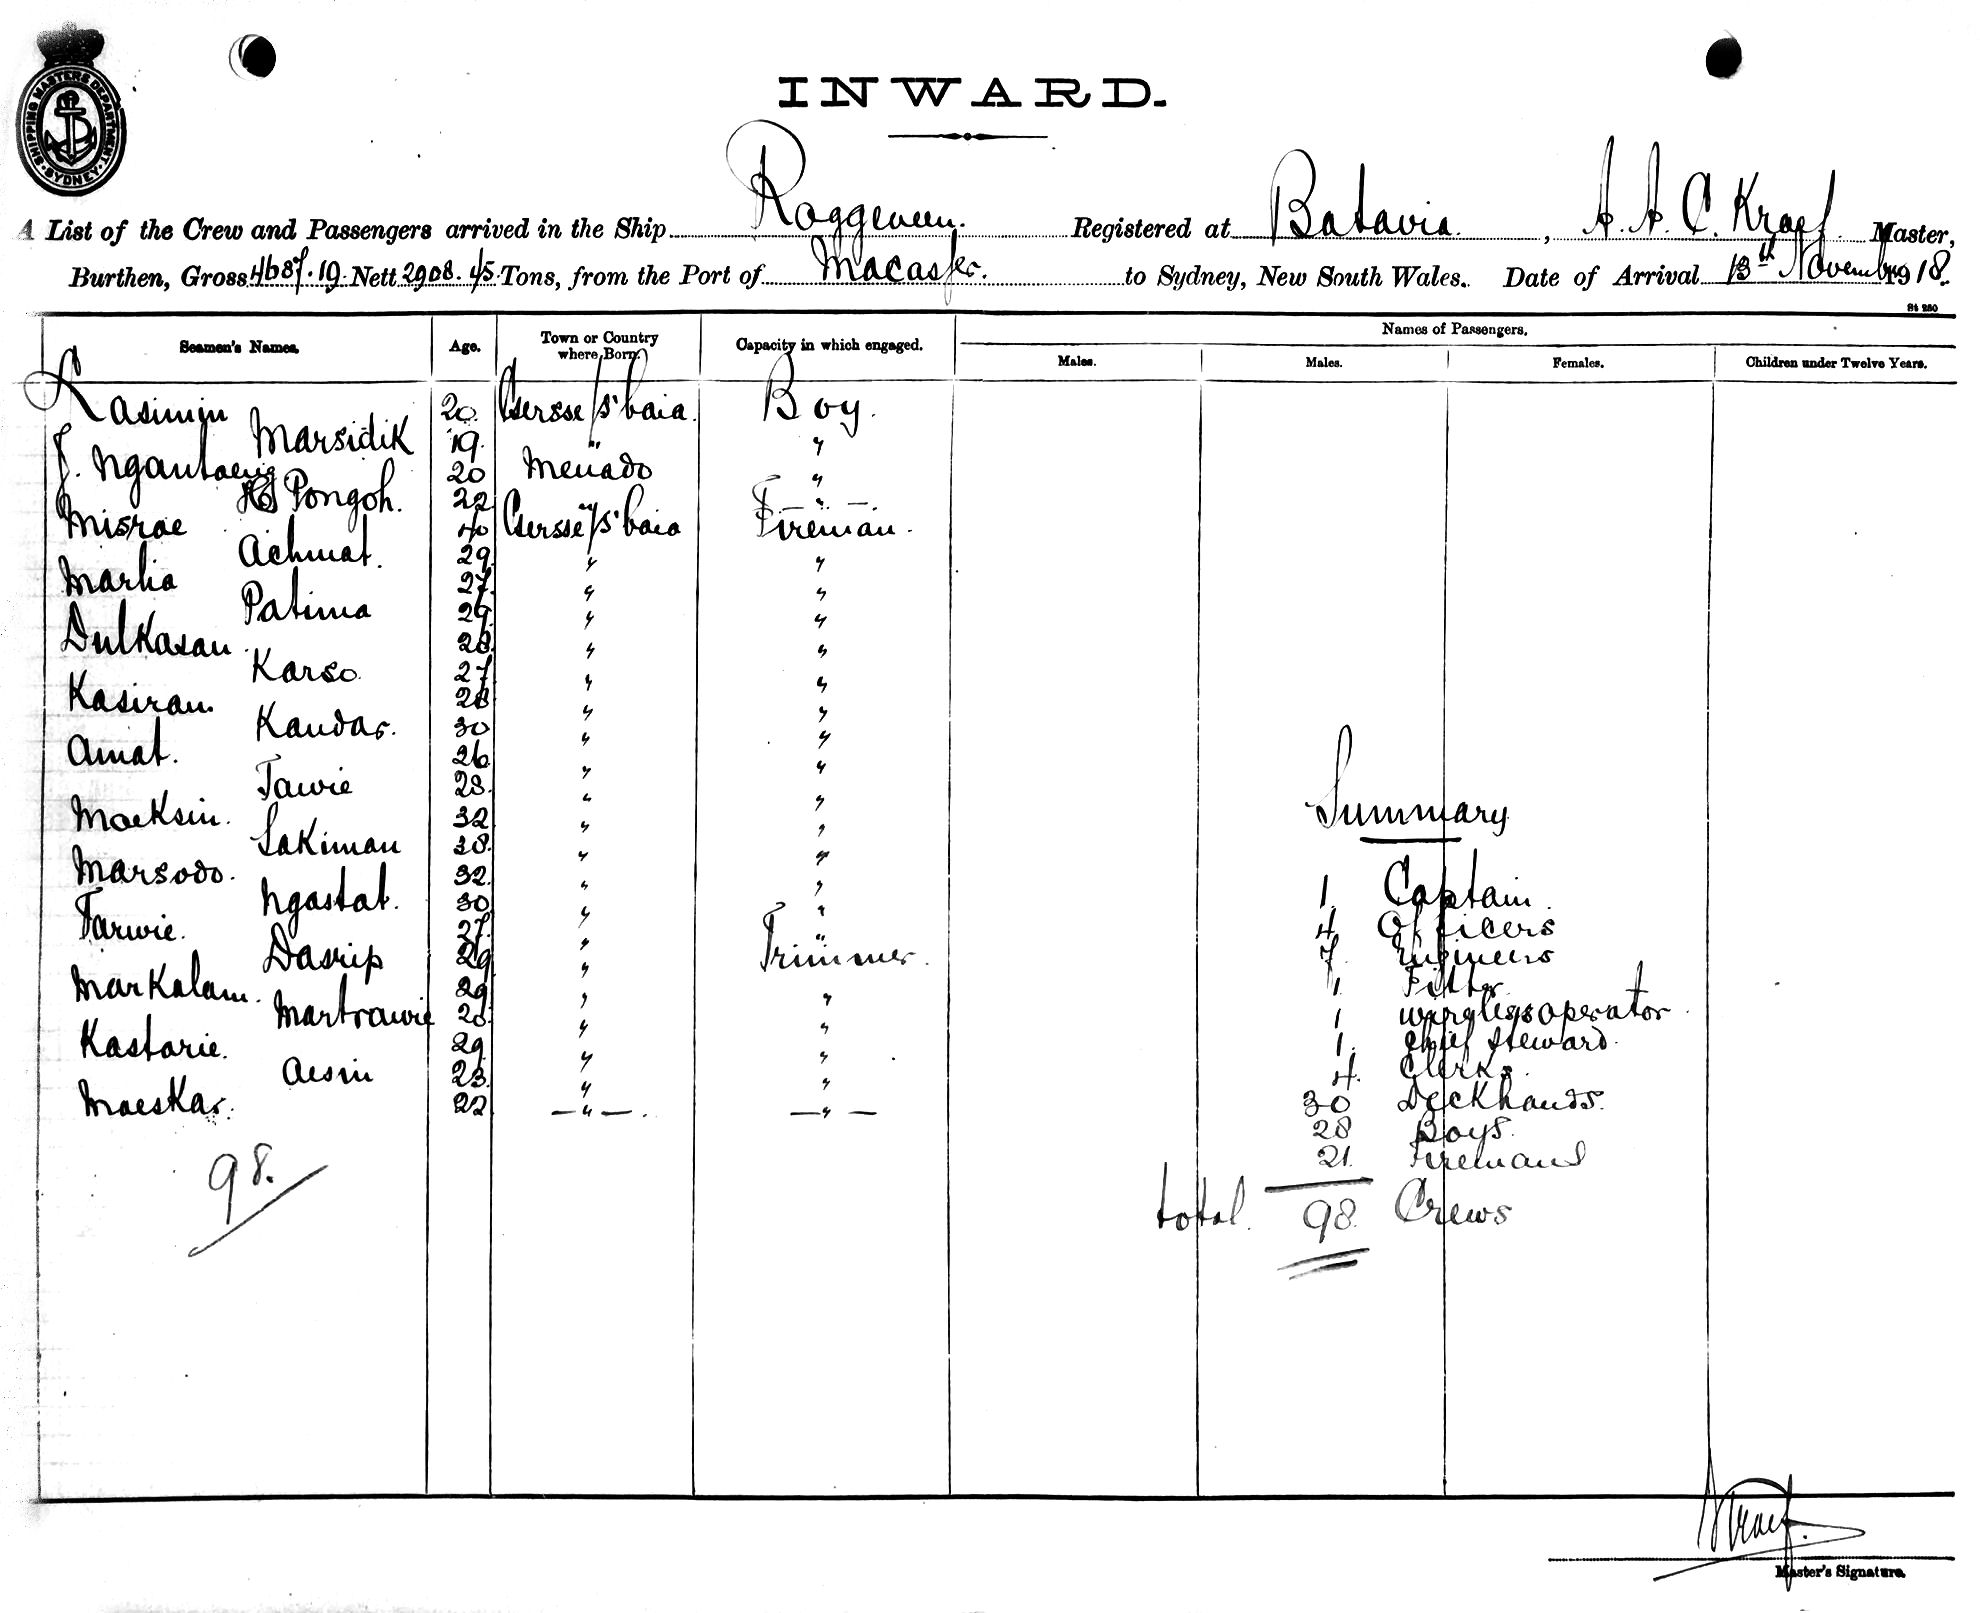 SHIPPING MASTERS DEPARTMENT
SYDNEY
INWARD.
A List of the Crew and Passengers arrived in the Ship Roggeveen. Registered at Batavia. , A. A. C. Kraef. Master,
Burthen, Gross 4687.19. Nett 2908.45. Tons, from the Port of Macasser. to Sydney, New South Wales. Date of Arrival 13th November 1918.
St 280
Seamen's Names. Age. Town or Country where Born. Capacity in which engaged. Names of Passengers.
Males. Males. Females. Children under Twelve Years.
Kasimin 20. Gersse/S'baia. Boy.
Marsidik 19. " "
J. Ngantoeng 20 Menado "
H Pongoh. 22 " — " —
Misrae 40 Gersse/S'baia Fireman.
Achmat. 29 " "
Marlia 27. " "
Patima 29. " "
Dulkasan. 28. " "
Karso. 27 " "
Kasiran. 28 " "
Kandar. 30 " "
Amat. 26. " "
Tawie 28. " "
Moeksin. 32 " "
Sakiman 38. " "
Marsodo. 32. " "
Ngastat. 30 " "
Tarwie. 27. " "
Dasrip 29 " Trimmer.
Markalam. 29 " "
Martrawie 28. " "
Kastarie. 29 " "
Aesin 23. " "
Moeskar. 22 — " — . — " —
98.
Summary
1. Captain.
4. Officers
7. Engineers
1. Fitter
1 wirelessoperator
1. Chief Steward.
4. Clerks.
30 Deckhands.
28 Boys.
21. Firemans
total. 98. Crews
Kraef.
Master's Signature.